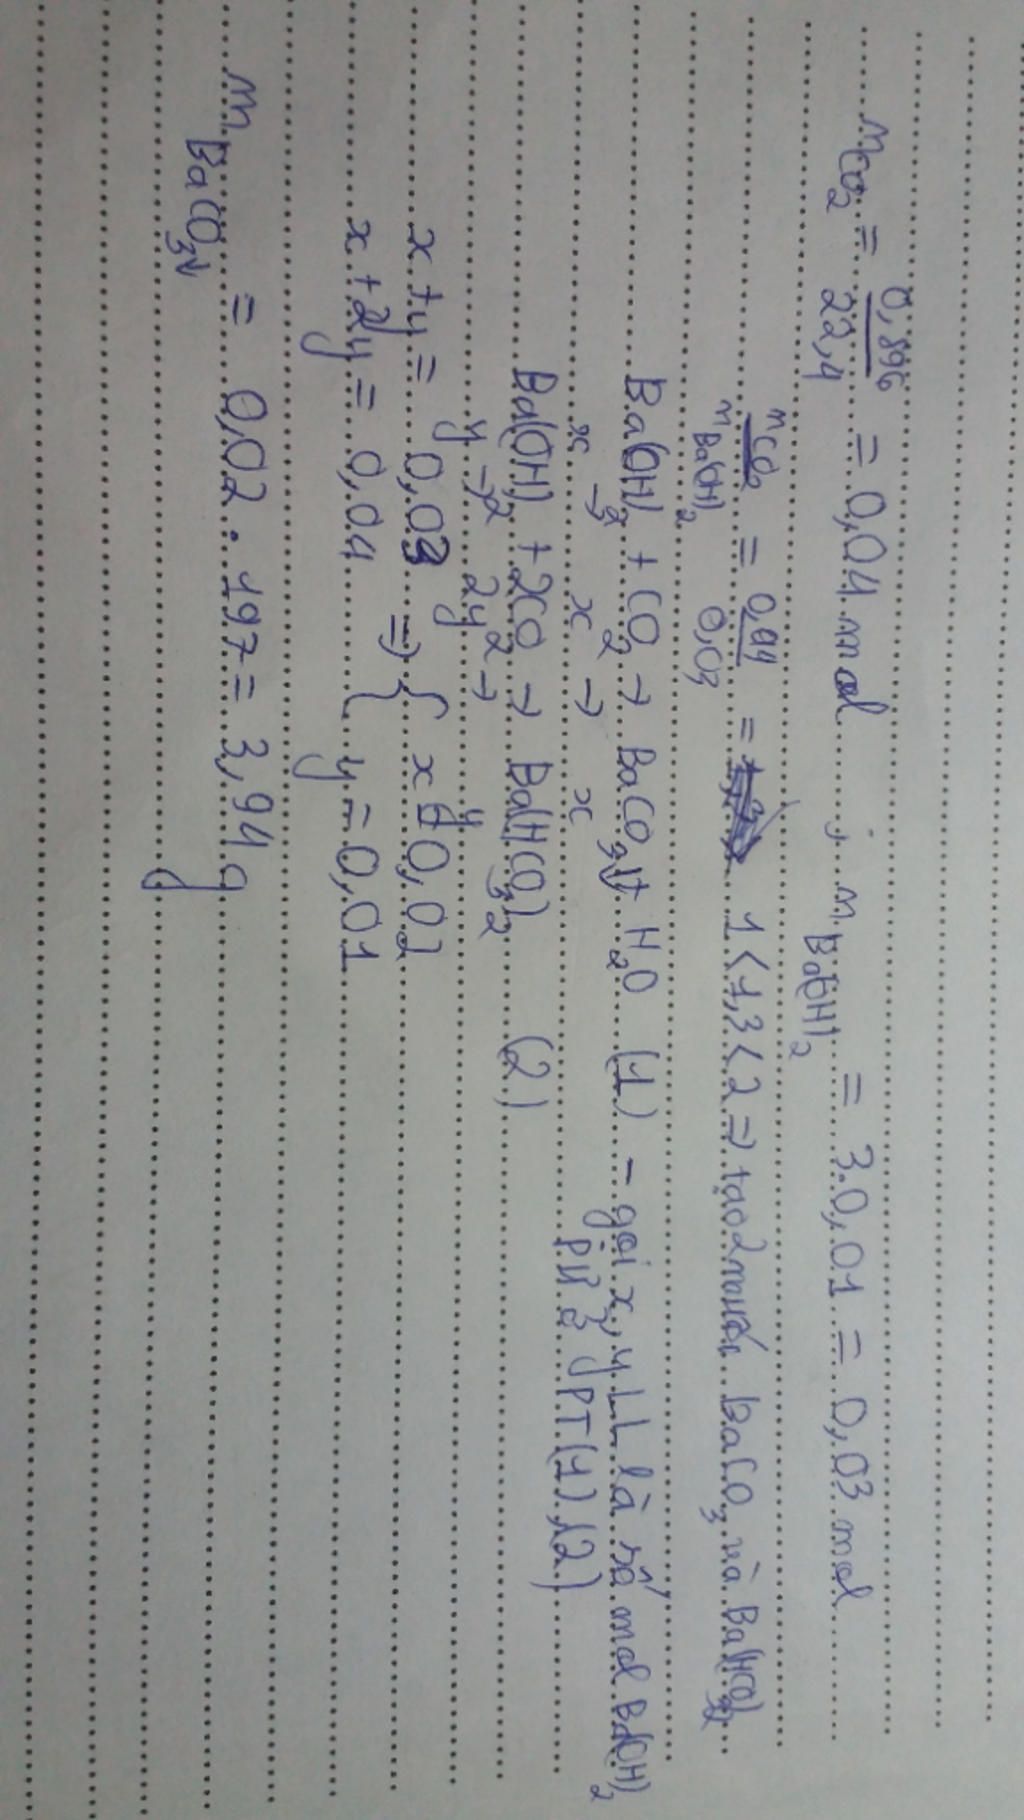 nCO2 = 0,896/22,4 = 0,04 mol ; nBa(OH)2 = 3.0,01 = 0,03 mol
nCO2/nBa(OH)2 = 0,04/0,03 = 1<1,3<2 => tạo 2 muối BaCO3 và Ba(HCO3)2
Ba(OH)2 + CO2 → BaCO3↓ + H2O (1) - gọi x, y LL là số mol Ba(OH)2
x → x → x PƯ ở PT(1),(2)
Ba(OH)2 + 2CO2 → Ba(HCO3)2 (2)
y → 2y → y
x + y = 0,03 => { x = 0,02
x + 2y = 0,04 y = 0,01
mBaCO3↓ = 0,02 . 197 = 3,94 g